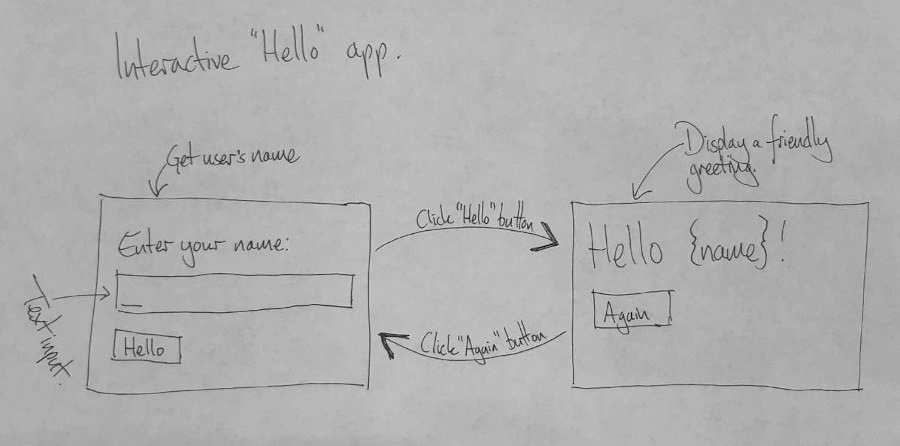 Interactive "Hello" app.
Get user's name
Enter your name:
Text input.
Hello
Click "Hello" button
Click "Again" button
Display a friendly
greeting.
Hello {name}!
Again